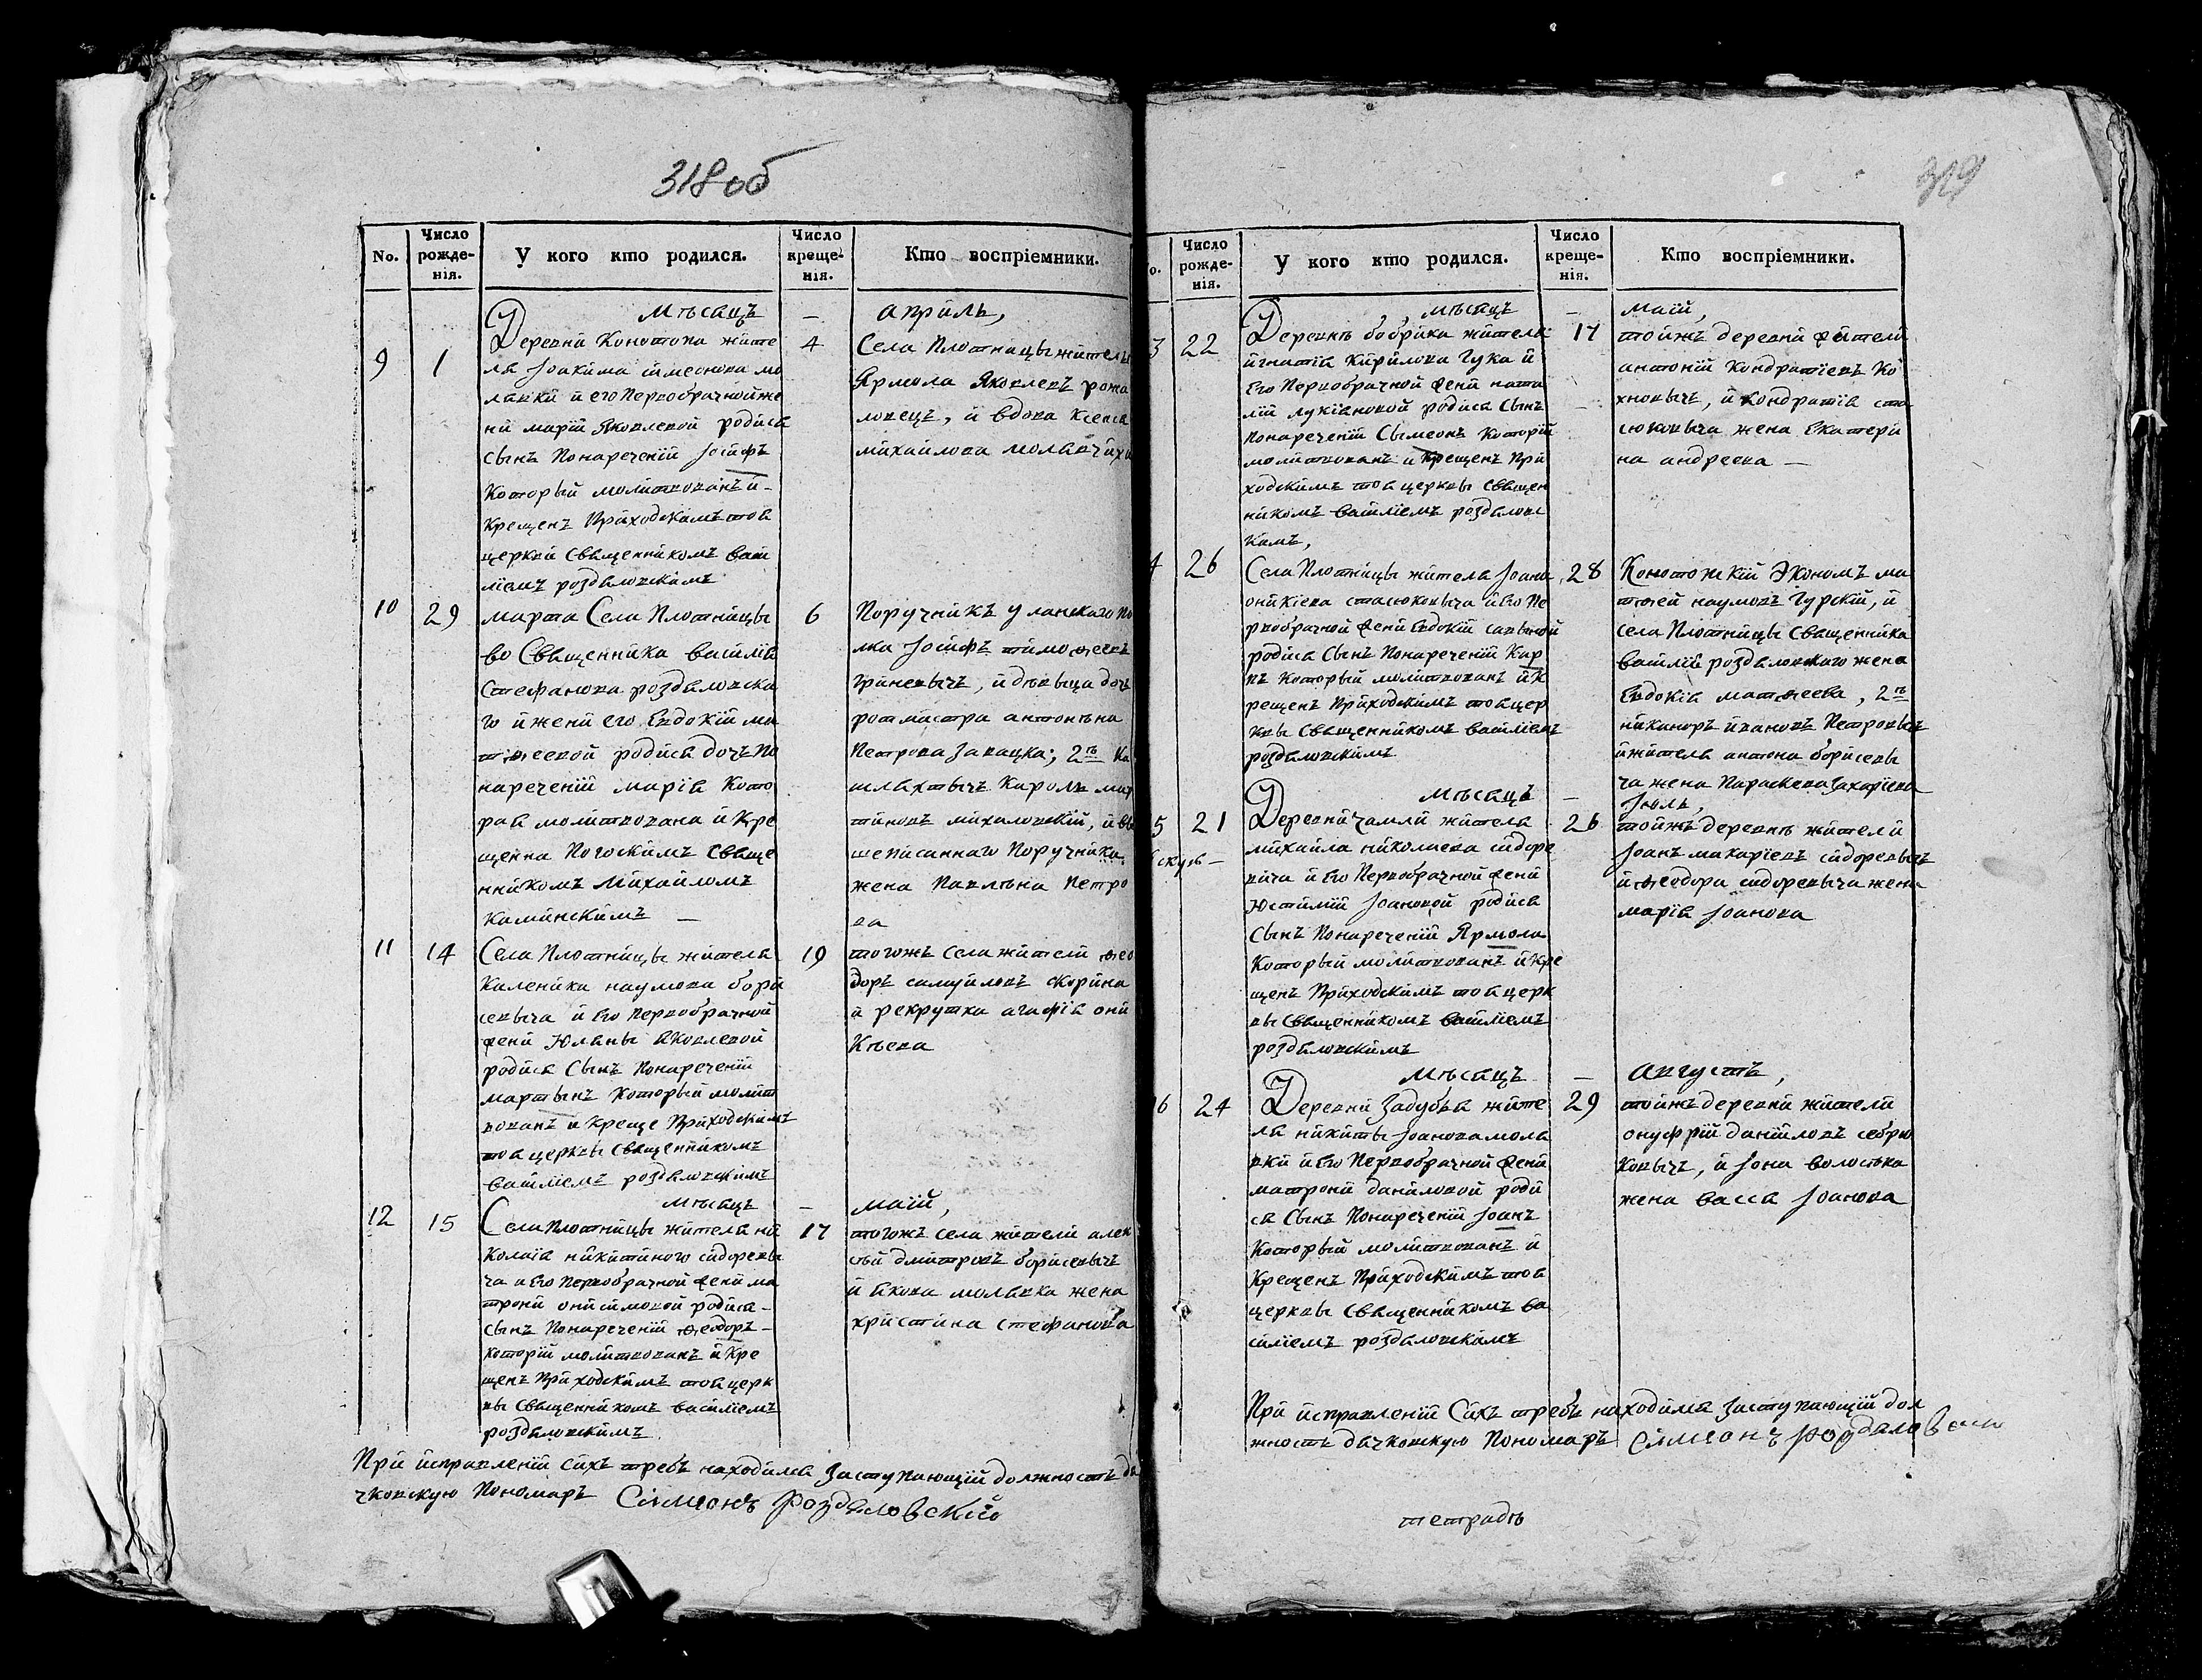 318об
No.
Число рожденія.
У кого кто родился.
Число крещенія.
Кто воспріемники.
Мѣсяцъ — Априль,
9 1
Деревни Конотопа жите
ля Іоакима симеонова мо
лявки и его Первобрачной же
ни марiи Яковлевой родися
сынъ Понареченiй Іосифъ
Который молитвованъ и
Крещенъ Приходскимъ тоя
церкви Священникомъ васи
лiемъ роздяловскимъ
4
Села Плотницы житель
Ярмола Яковлевъ рожа
ловецъ, и вдова Ксенiя
михайлова молявчиха
10 29
марта Села Плотницы
во Священника василiя
Стефанова роздяловска
го и жени его Евдокiи ма
тѳеевой родися дочь По
нареченiй марiя Кото
рая молитвована и Кре
щенна Погоскимъ Свяще
нникомъ Михаиломъ
Каминскимъ —
6
Поручникъ уланскаго По
лка Іосифъ тимоѳеевъ
гриневичъ, и дѣвыца дочь
ротмистра антонѣна
Петрова Завацка; 2гѣ
шляхтычъ Кароль мар
тиновъ михаловскiй, и вы
шеписаннаго Поручника
жена Павлѣна Петро
ва
11 14
Села Плотницы жителя
Каленика наумова бори
севыча и Его Первобрачной
жени Юлiаны яковлевой
родися Сынъ Понареченiй
мартынъ Который молит
вованъ и Креще Приходскимъ
тоя церквы Священникомъ
василiемъ роздяловскимъ
19
тогожъ Села жители ѳео
доръ самуиловъ скорина
и рекрутка агафiя они
Кѣева
Мѣсяцъ — маiй,
12 15
Села Плотницы жителя ни
колаiя никитиного сидоревы
ча и Его Первобрачной жени ма
трони онисимовой родися
сынъ Понареченiй ѳеодоръ
которiй молитвованъ и Кре
щенъ Приходскимъ тоя церк
вы Священникомъ василiемъ
роздяловскимъ
17
тогожъ села жители алек
сiй дмитровъ борисевычъ
и якова молявка жена
христина стефанова
При исправленiи Сихъ требъ находился заступающiй должность дя
чковскую Пономаръ Симеонъ роздяловскiй
319
о.
Число рожденія.
У кого кто родился.
Число крещенія.
Кто воспріемники.
мѣсяцъ — маiй,
3 22
Деревнѣ бобрика жителя
игнатiя Кирилова Гука и
Его Первобрачной жени ната
лiи лукiяновой родися Сынъ
Понареченiй Сымеонъ Которiй
молитвованъ и Крещенъ При
ходскимъ тоя церквы Священ
никомъ василiемъ роздяловс
кимъ,
17
тойжъ деревни жители
антонiй Кондратiевъ Ко
хновычъ, и Кондратiя ста
сюковыча жена Екатери
на андреева —
4 26
Села Плотницы жителя Іоана
оникiева стасюковыча и Его Пе
рвобрачной жени Евдокiи савыной
родися Сынъ Понареченiй Кар
пъ Который молитвованъ и К
рещенъ Приходскимъ тоя цер
квы Священникомъ василiемъ
роздяловскимъ
28
Конотожскiй Экономъ ма
тѳей наумовъ Гурскiй, и
села Плотницы Священника
василiя роздяловскаго жена
Евдокiя матѳеева, 2гѣ
никаноръ ивановъ Петровычъ
и жителя антона борисевы
ча жена Параскева захарiева
Мѣсяцъ — Іюль,
5 21
Деревни Чамли жителя
михайла николаева сидоре
вича и Его Первобрачной жени
Юстинiи Іоановой родися
Сынъ Понареченiй Ярмола
Который молитвованъ и Кре
щенъ Приходскимъ тоя церк
вы Священникомъ василiемъ
роздяловскимъ
26
тойжъ деревнѣ жители
Іоанъ макарiевъ сидоревычъ
и ѳеодора сидоревыча жена
марiя Іоанова
Мѣсяцъ — Августъ,
16 24
Деревни Задубья жите
ля никиты Іоанова моля
вки и Его Первобрачной жени
матрони даниловой роди
ся Сынъ Понареченiй Іоанъ
Который молитвованъ и
Крещенъ Приходскимъ тоя
церквы Священникомъ ва
силiемъ роздяловскимъ
29
тойжъ деревни жители
онуфрiй данiиловъ себрю
ковычъ, и Іона волоська
жена васса Іоанова
При исправленiи Сихъ требъ находился заступающiй дол
жность дячковскую Пономаръ Симеонъ роздяловскiй
тетрадь